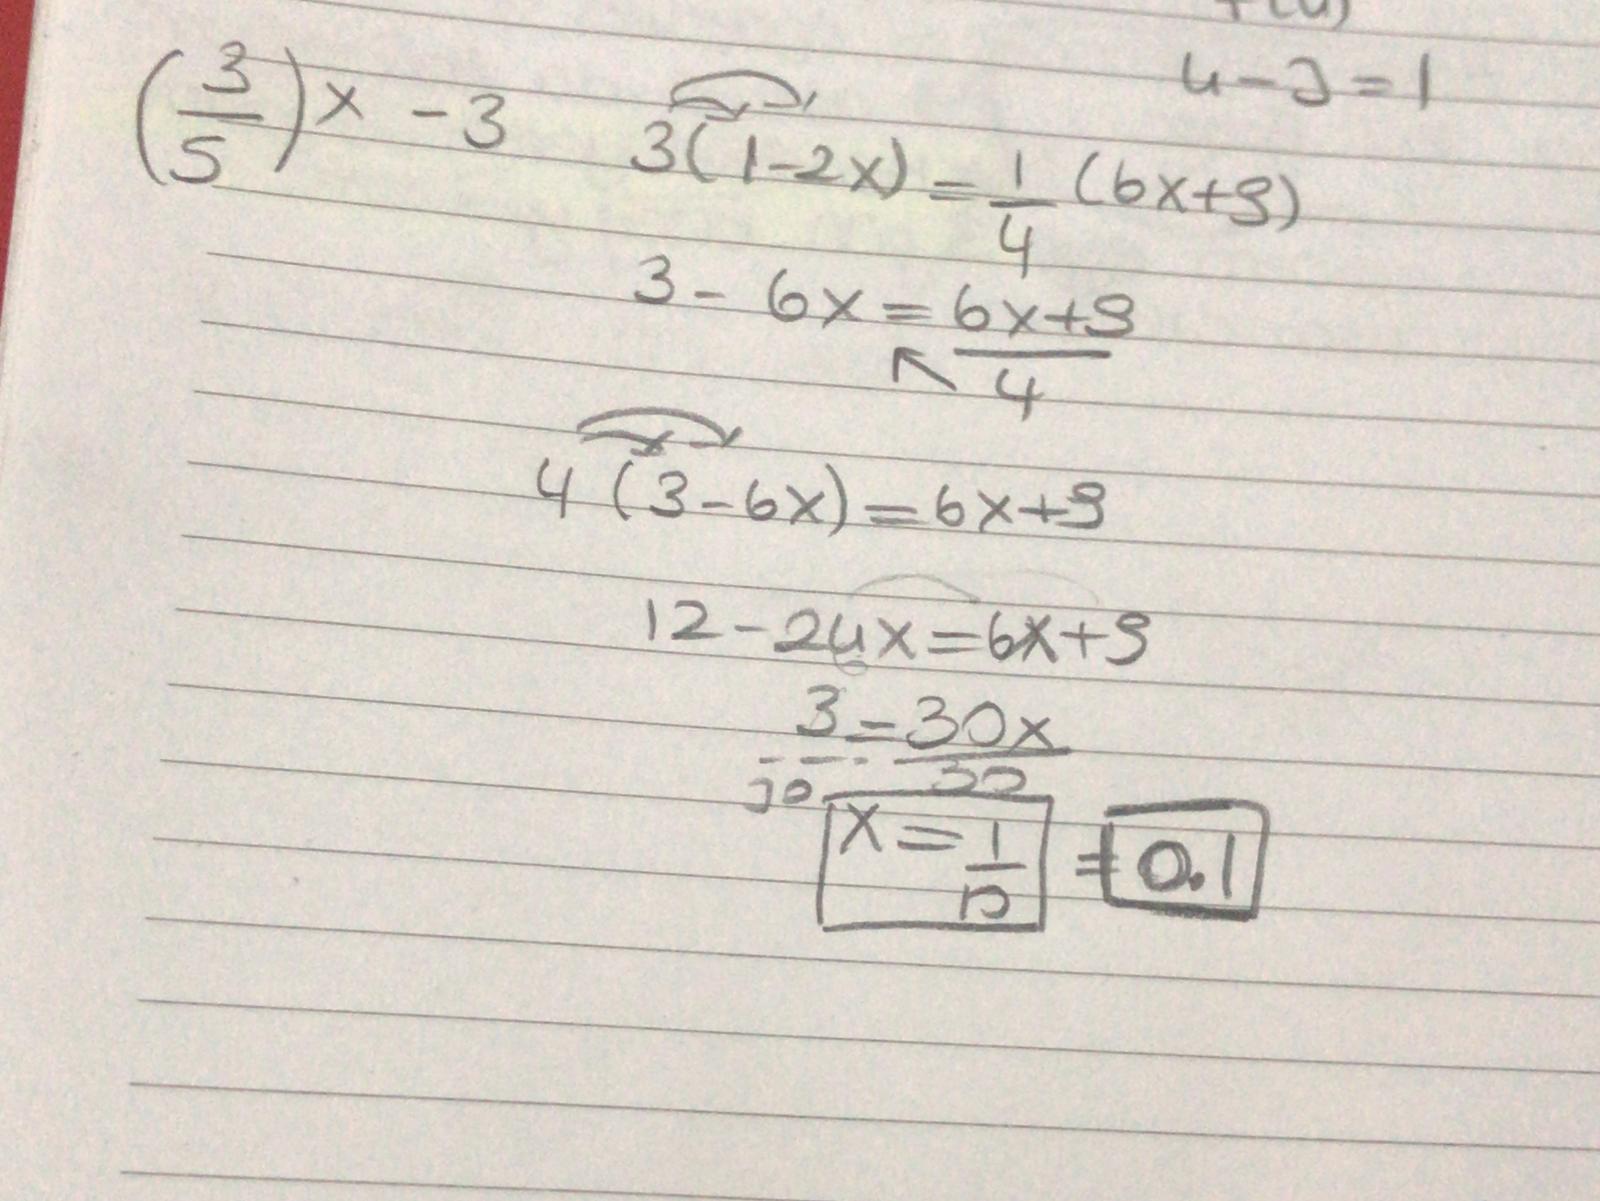 4-3=1
(3/5)x -3
3(1-2x) = 1/4 (6x+9)
3- 6x = 6x+9/4
4(3-6x) = 6x+9
12-24x=6x+9
3=30x
30 30
x = 1/10 = 0.1